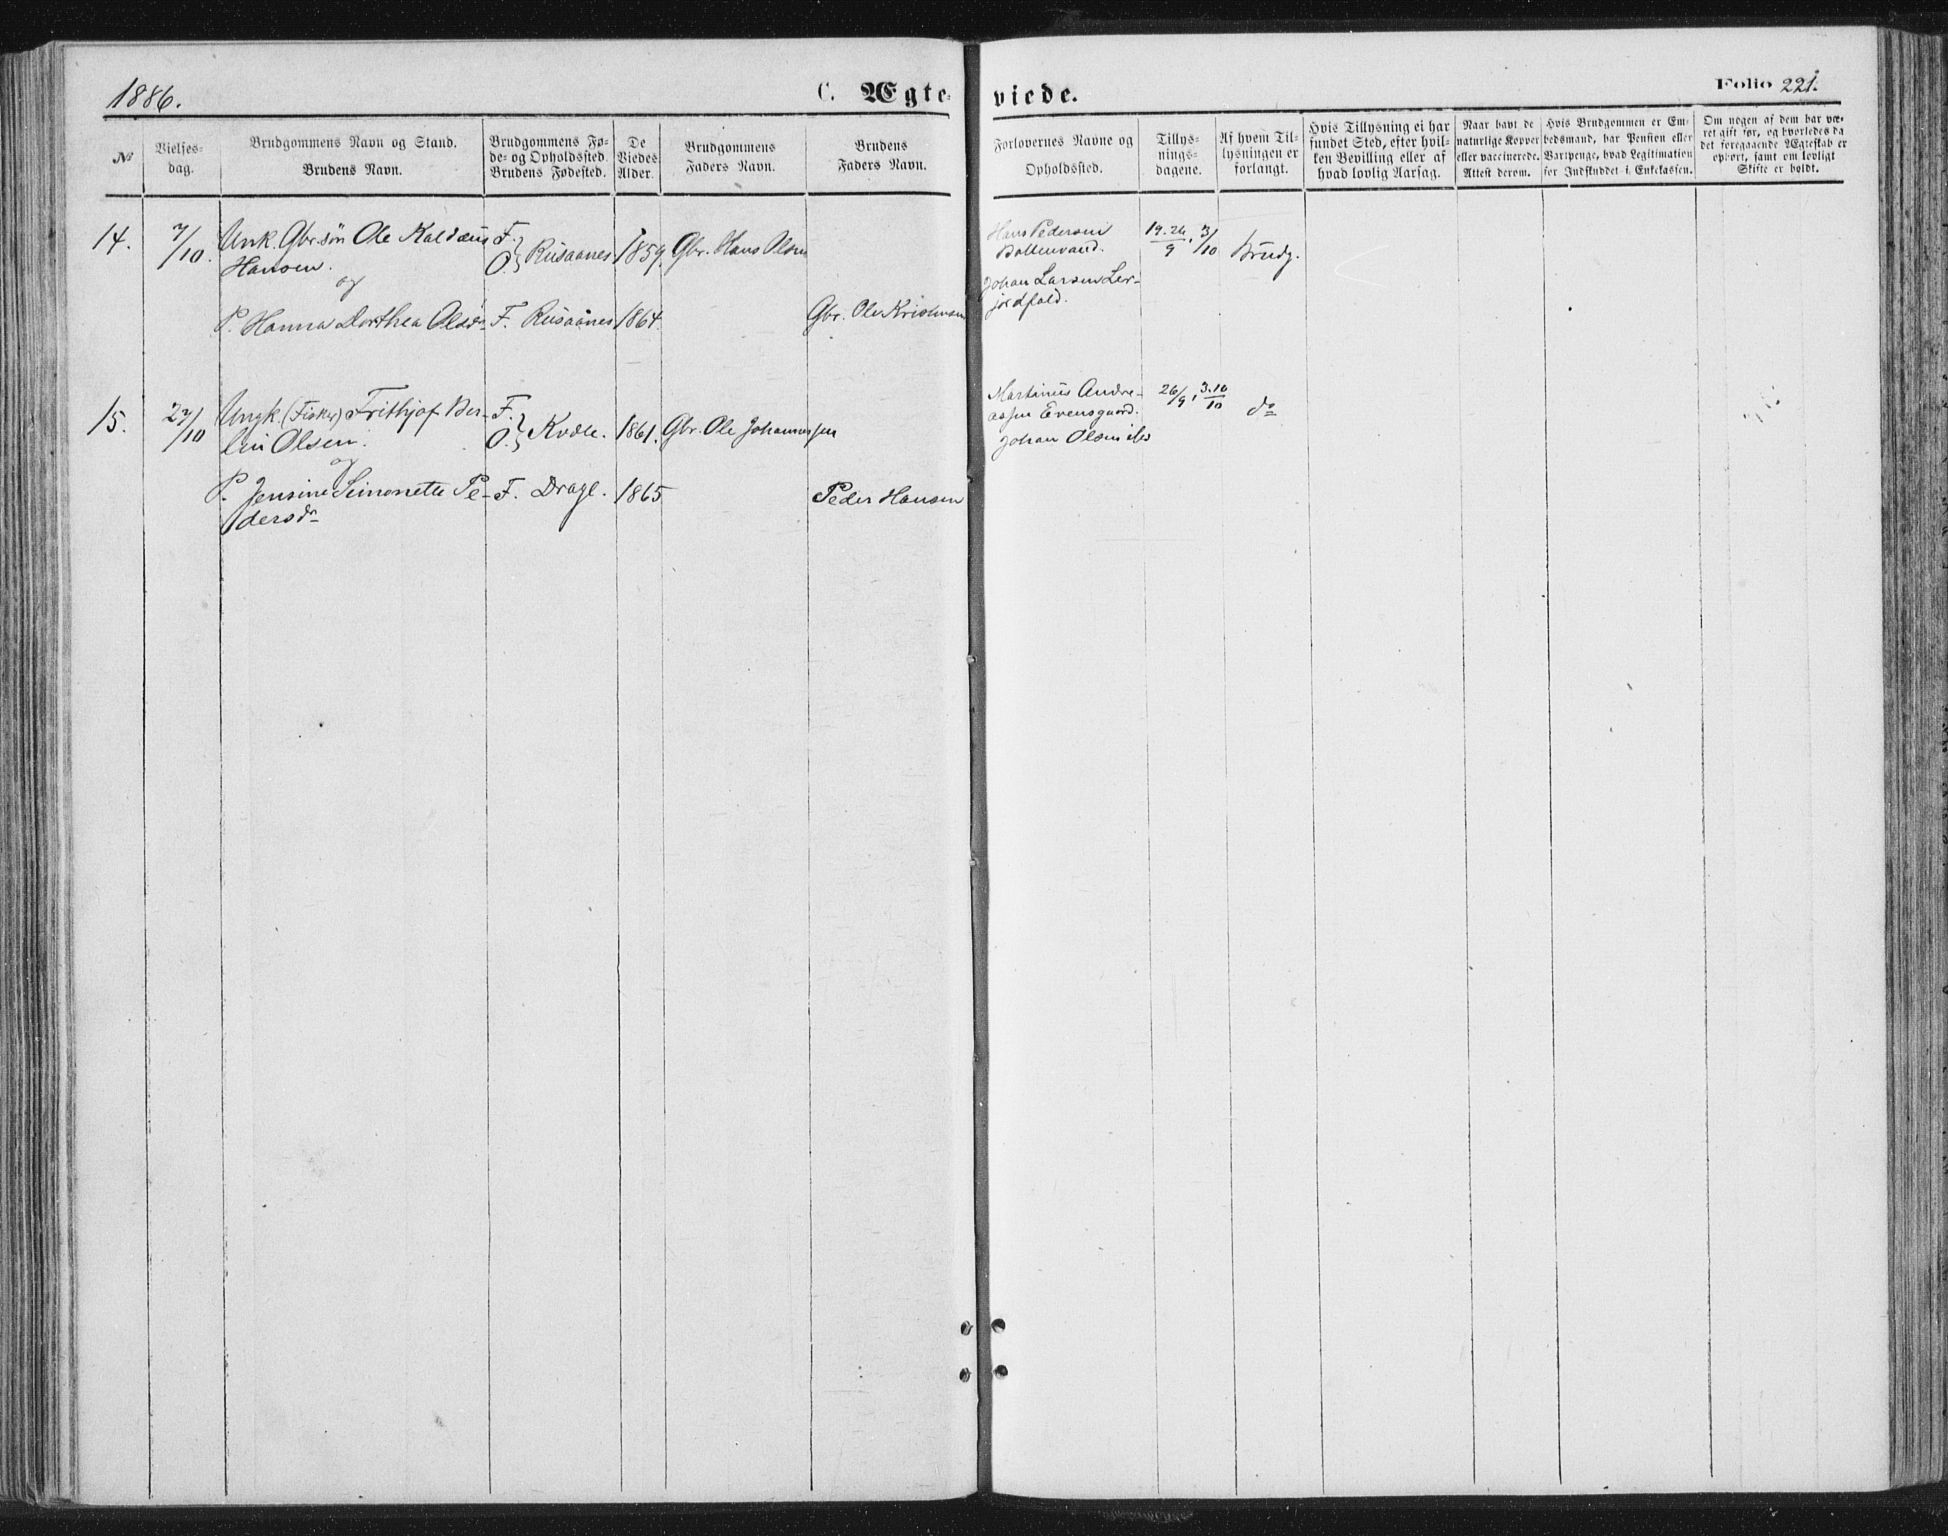 1886.
C. Ægte-
viede.
Folio 221.
№
Vielses-
dag.
Brudgommens Navn og Stand.
Brudens Navn.
Brudgommens Fø-
de- og Opholdssted.
Brudens Fødested.
De
Viedes
Alder.
Brudgommens
Faders Navn.
Brudens
Faders Navn.
Forlovernes Navne og
Opholdssted.
Tillys-
nings-
dagene.
Af hvem Til-
lysningen er
forlangt.
Hvis Tillysning ei har
fundet Sted, efter hvil-
ken Bevilling eller af
hvad lovlig Aarsag.
Naar havt de
naturlige Kopper
eller vaccinerede.
Attest derom.
Hvis Brudgommen er Em-
bedsmand, har Pension eller
Vartpenge, hvad Legitimation
for Indskuddet i Enkekassen.
Om nogen af dem har væ-
ret gift før, og hvorledes da
det foregaaende Ægteskab er
ophørt, samt om lovligt
Skifte er holdt.
14.
7/10.
Unk. Gbr.søn Ole Kaldæus
Hansen.
og
F.
O.
Rusaanes.
1859.
Gbr. Hans Olsen
Hans Pedersen
Johan Larsen Ler-
jordfald.
19. 26/9, 3/10
Brudg.
P. Hanna Dorthea Olsdr
F. Rusaanes
1864.
Gbr. Ole Kristensen
15.
27/10
Ungk. (Fisker) Frithjof Ber-
lin Olsen.
og
F.
O.
Kvæle.
1861.
Gbr. Ole Johannessen
Martinus Andre-
assen Evensgaard.
Johan Olsen
26/9, 3.10/10
do
P. Jensine Simonette Pe-
dersdr
F. Drage.
1865
Peder Hansen